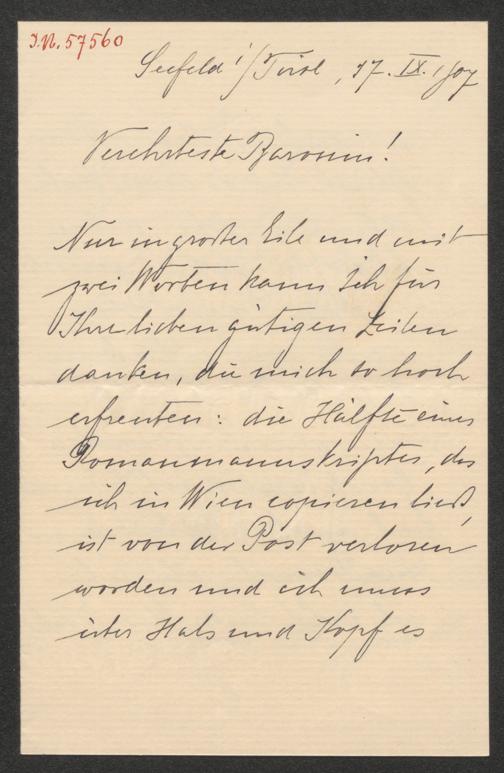 I.N. 57560
Seefeld i/Tirol, 17. IX. 1907
Verehrteste Baronin!
Nur in großer Eile und mit
zwei Worten kann ich für
Ihre lieben gütigen Zeilen
danken, die mich so hoch
erfreuten: die Hälfte eines
Romanmanuskriptes, das
ich in Wien copieren ließ,
ist von der Post verloren
worden und ich muss
über Hals und Kopf es